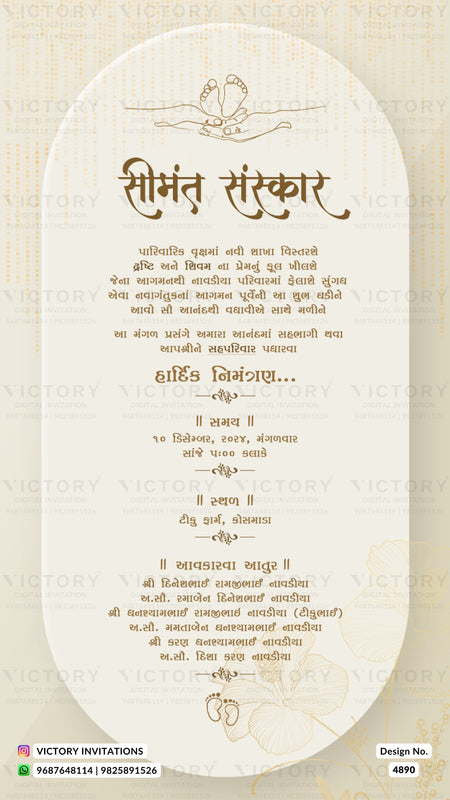 सीमंत संस्कार
પારિવારિક વૃક્ષમાં નવી શાખા વિસ્તરશે
દ્રષ્ટિ અને શિવમ ના પ્રેમનું ફૂલ ખીલશે
જેના આગમનથી નાવડીયા પરિવારમાં ફેલાશે સુંગધ
એવા નવાગંતુકનાં આગમન પૂર્વેની આ શુભ ઘડીને
આવો સૌ આનંદથી વધાવીએ સાથે મળીને
આ મંગળ પ્રસંગે અમારા આનંદમાં સહભાગી થવા
આપશ્રીને સહપરિવાર પધારવા
હાર્દિક નિમંત્રણ...
|| સમય ||
૧૦ ડિસેમ્બર, ૨૦૨૪, મંગળવાર
સાંજે ૫:૦૦ કલાકે
|| સ્થળ ||
ટીકુ ફાર્મ, કોસમાડા
|| આવકારવા આતુર ||
શ્રી દિનેશભાઈ રામજીભાઈ નાવડીયા
અ.સૌ. રમાબેન દિનેશભાઈ નાવડીયા
શ્રી ઘનશ્યામભાઈ રામજીભાઈ નાવડીયા (ટીકુભાઈ)
અ.સૌ. મમતાબેન ઘનશ્યામભાઈ નાવડીયા
શ્રી કરણ ઘનશ્યામભાઈ નાવડીયા
અ.સૌ. દિશા કરણ નાવડીયા
VICTORY INVITATIONS
9687648114 | 9825891526
Design No.
4890